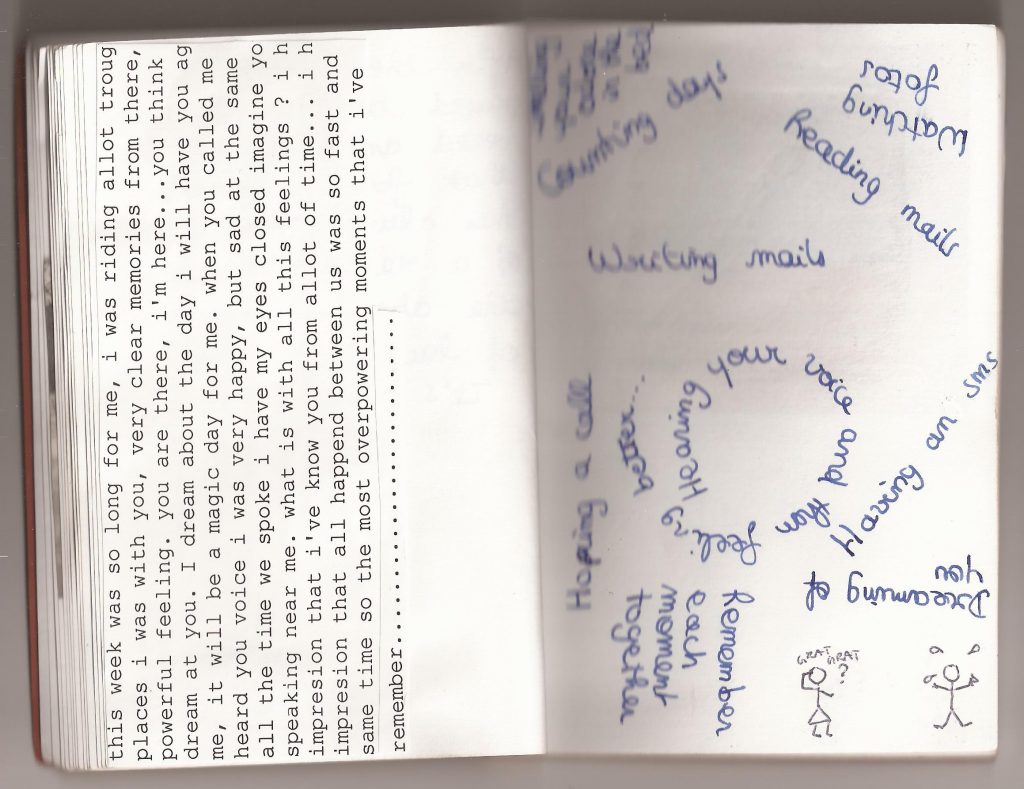 this week was so long for me, i was riding allot troug
places i was with you, very clear memories from there,
powerful feeling. you are there, i'm here...you think
dream at you. I dream about the day i will have you ag
me, it will be a magic day for me. when you called me
heard you voice i was very happy, but sad at the same
all the time we spoke i have my eyes closed imagine yo
speaking near me. what is with all this feelings ? i h
impresion that i've know you from allot of time... i h
impresion that all happend between us was so fast and
same time so the most overpowering moments that i've
remember.......................................
your
in the
bed
Counting days
Watching
fotos
Reading mails
Writing mails
Hoping a call
Hearing your voice and than feeling
Having an sms
Dreaming of
you
Remember
each
moment
together
GRAT GRAT
?